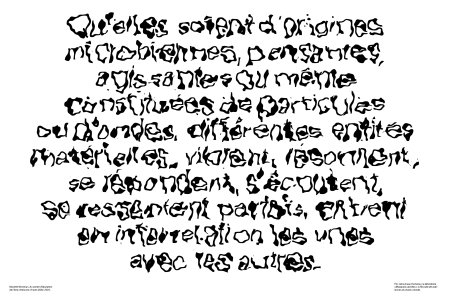 Qu'elles soient d'origines
microbiennes, pensantes,
agissantes ou même
constituées de particules
ou d'ondes, différentes entités
matérielles, vibrent, résonnent,
se répondent, s'écoutent,
se ressentent parfois, entrent
en interrelation les unes
avec les autres.